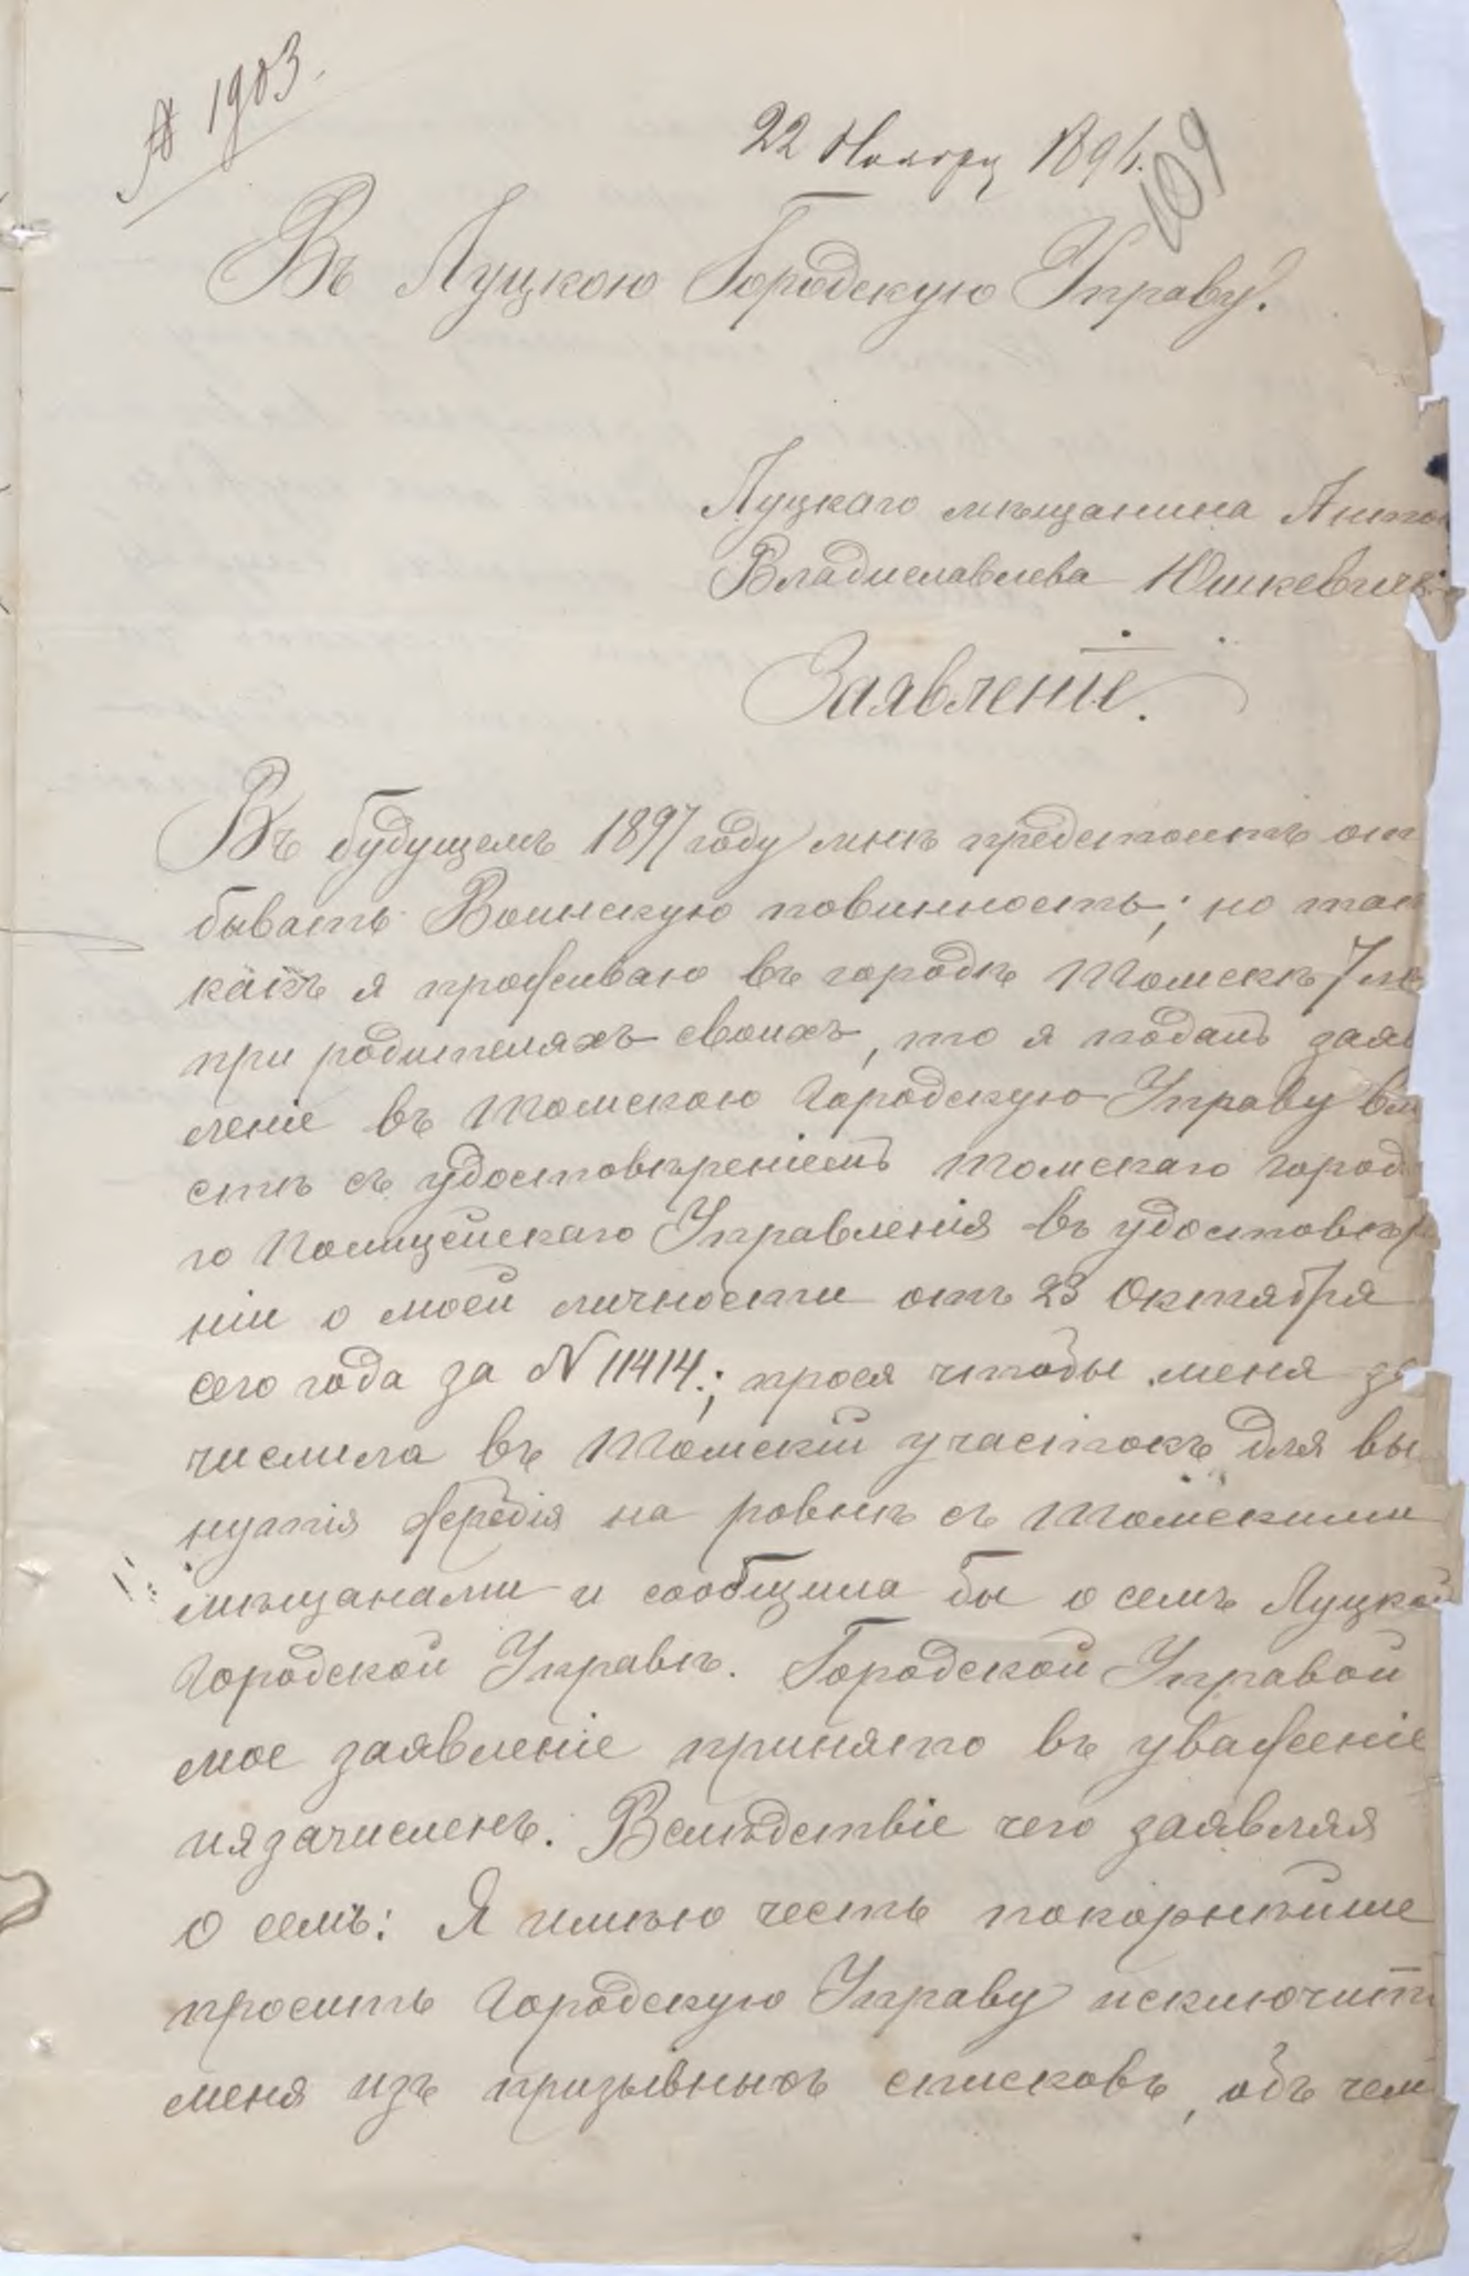 № 1903.
22 Ноября 1896.
109
Въ Луцкою Городскую Управу.
Луцкаго мѣщанина Анто
Владиславлева Юшкевича
Заявленіе.
Въ будущемъ 1897 году мнѣ предстоитъ от
бывать Воинскую повинность; но так
какъ я проживаю въ городѣ Томскѣ 7 лѣ
при родителяхъ своихъ, то я подалъ заяв
леніе въ Томскою Городскую Управу вмѣ
стѣ съ удостовѣреніемъ Томскаго Город
го Полицейскаго Управленія въ удостовѣр
ніи о моей личности отъ 23 Октября
сего года за № 11414.; прося чтобы меня за
числила въ Томскій участокъ для вы
нутія жребія на ровнѣ съ Томскими
мѣщанами и сообщила бы о семъ Луцкой
Городской Управѣ. Городской Управой
мое заявленіе принято въ уваженіе
и я зачисленъ. Вслѣдствіе чего заявляя
о семъ: Я имѣю честь покорнѣйше
просить Городскую Управу исключить
меня изъ призывныхъ списковъ, объ чем